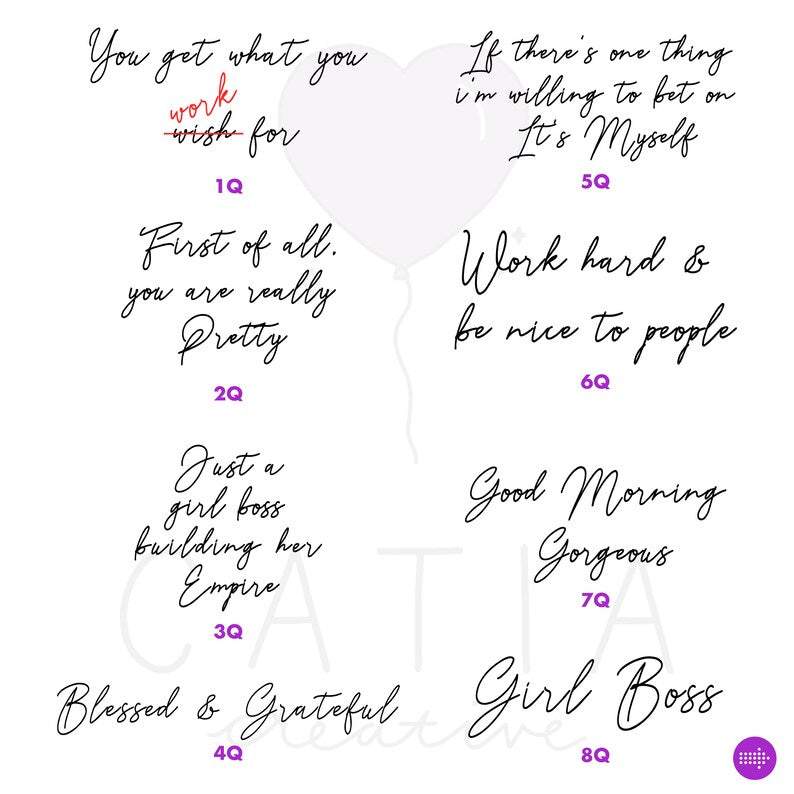 You get what you
work
wish for
1Q
First of all,
you are really
Pretty
2Q
Just a
girl boss
building her
Empire
3Q
Blessed & Grateful
4Q
If there's one thing
i'm willing to bet on
It's Myself
5Q
Work hard &
be nice to people
6Q
Good Morning
Gorgeous
7Q
Girl Boss
8Q
CATIA
creative